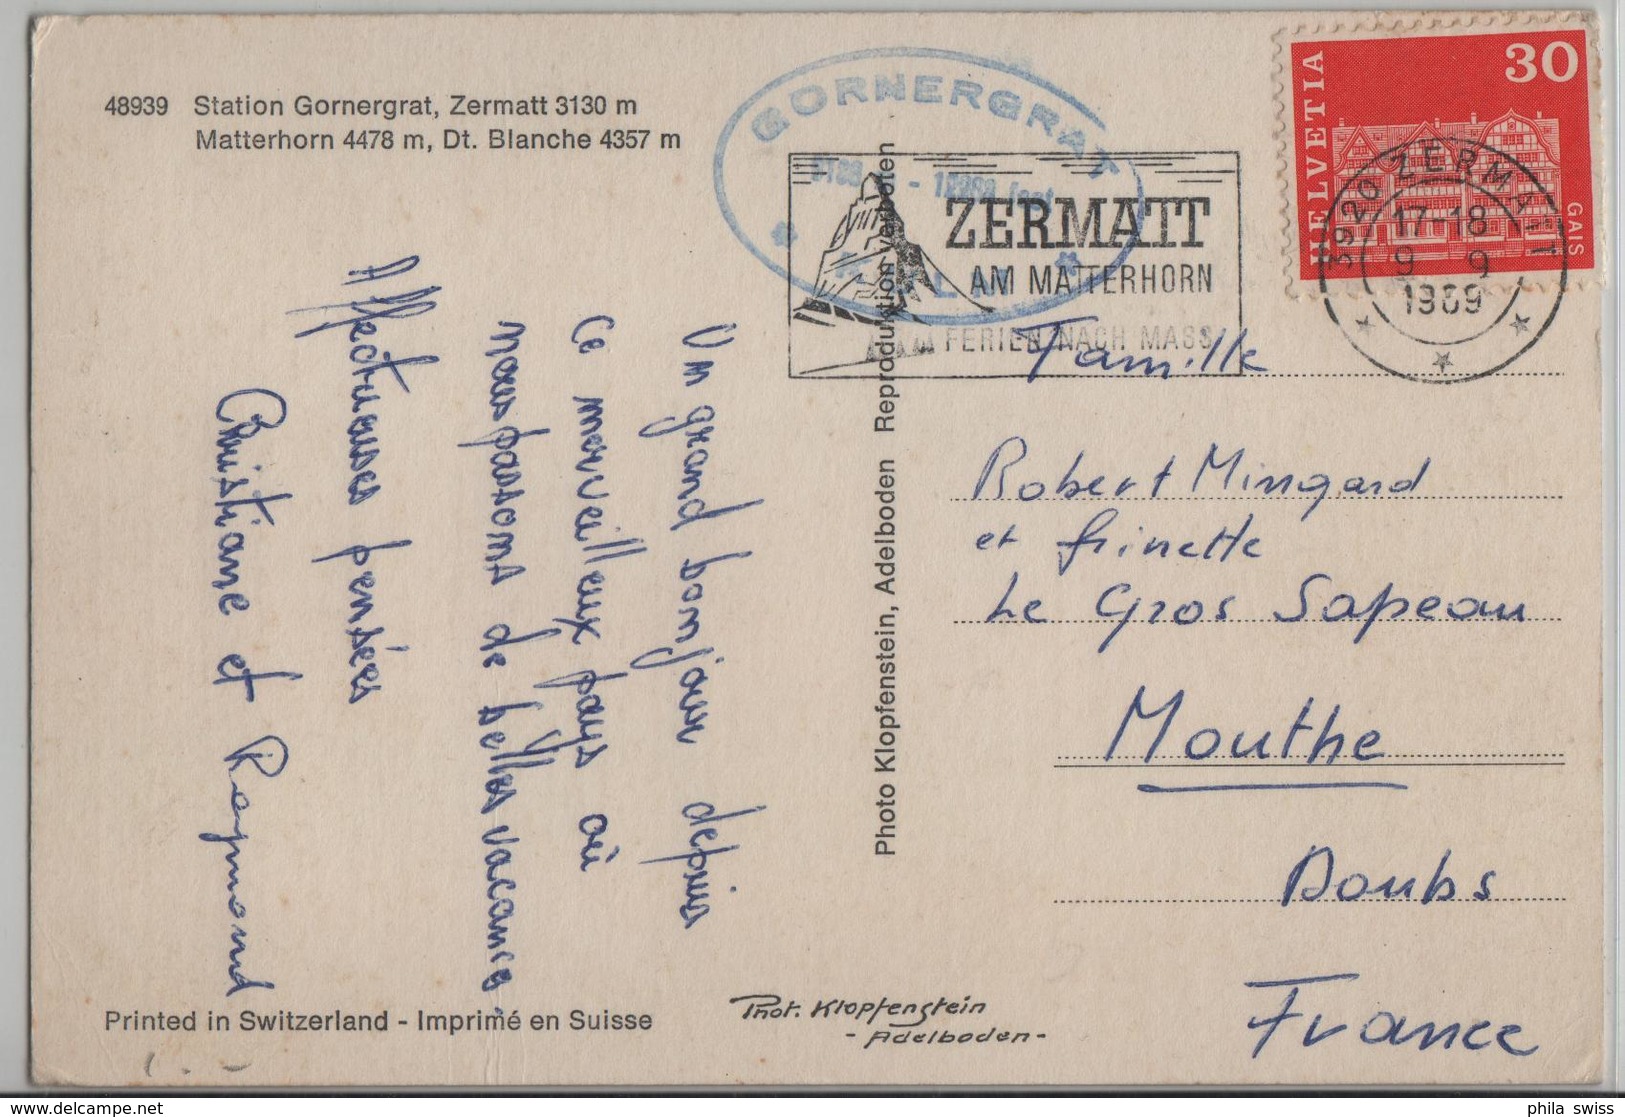 48939 Station Gornergrat, Zermatt 3130 m
Matterhorn 4478 m, Dt. Blanche 4357 m
GORNERGRAT
ZERMATT
AM MATTERHORN
FERIEN NACH MASS
HELVETIA
30
GAIS
3920 ZERMATT
17-18
9 9
1969
Un grand bonjour depuis
Ce merveilleux pays où
nous passons de belles vacances.
Affectueuses pensées
Christiane et Raymond
Photo Klopfenstein, Adelboden Reproduktion verboten
Famille
Robert Mingard
et Ginette
Le Gros Sapeau
Mouthe
Doubs
France
Printed in Switzerland - Imprimé en Suisse
Phot. Klopfenstein
- Adelboden -
www.delcampe.net
phila_swiss